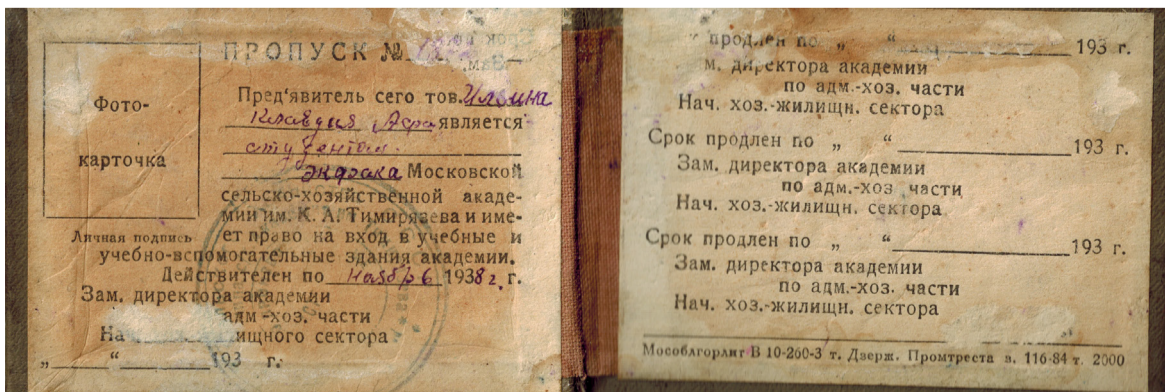 ПРОПУСК №
Фото-
карточка
Личная подпись
Пред'явитель сего тов. Ильина
Клавдия Афа является
студентом
экфака Московской
сельско-хозяйственной акаде-
мии им. К. А. Тимирязева и име-
ет право на вход в учебные и
учебно-вспомогательные здания академии.
Действителен по ноябрь 1938 г. г.
Зам. директора академии
адм.-хоз. части
На ищного сектора
„ “ 193 г.
продлен по „ “ 193 г.
м. директора академии
по адм.-хоз. части
Нач. хоз.-жилищн. сектора
Срок продлен по „ “ 193 г.
Зам. директора академии
по адм.-хоз части
Нач. хоз.-жилищн. сектора
Срок продлен по „ “ 193 г.
Зам. директора академии
по адм.-хоз. части
Нач. хоз.-жилищн. сектора
Мособлгорлит В 10-260-3 т. Дзерж. Промтреста з. 116-84 т. 2000